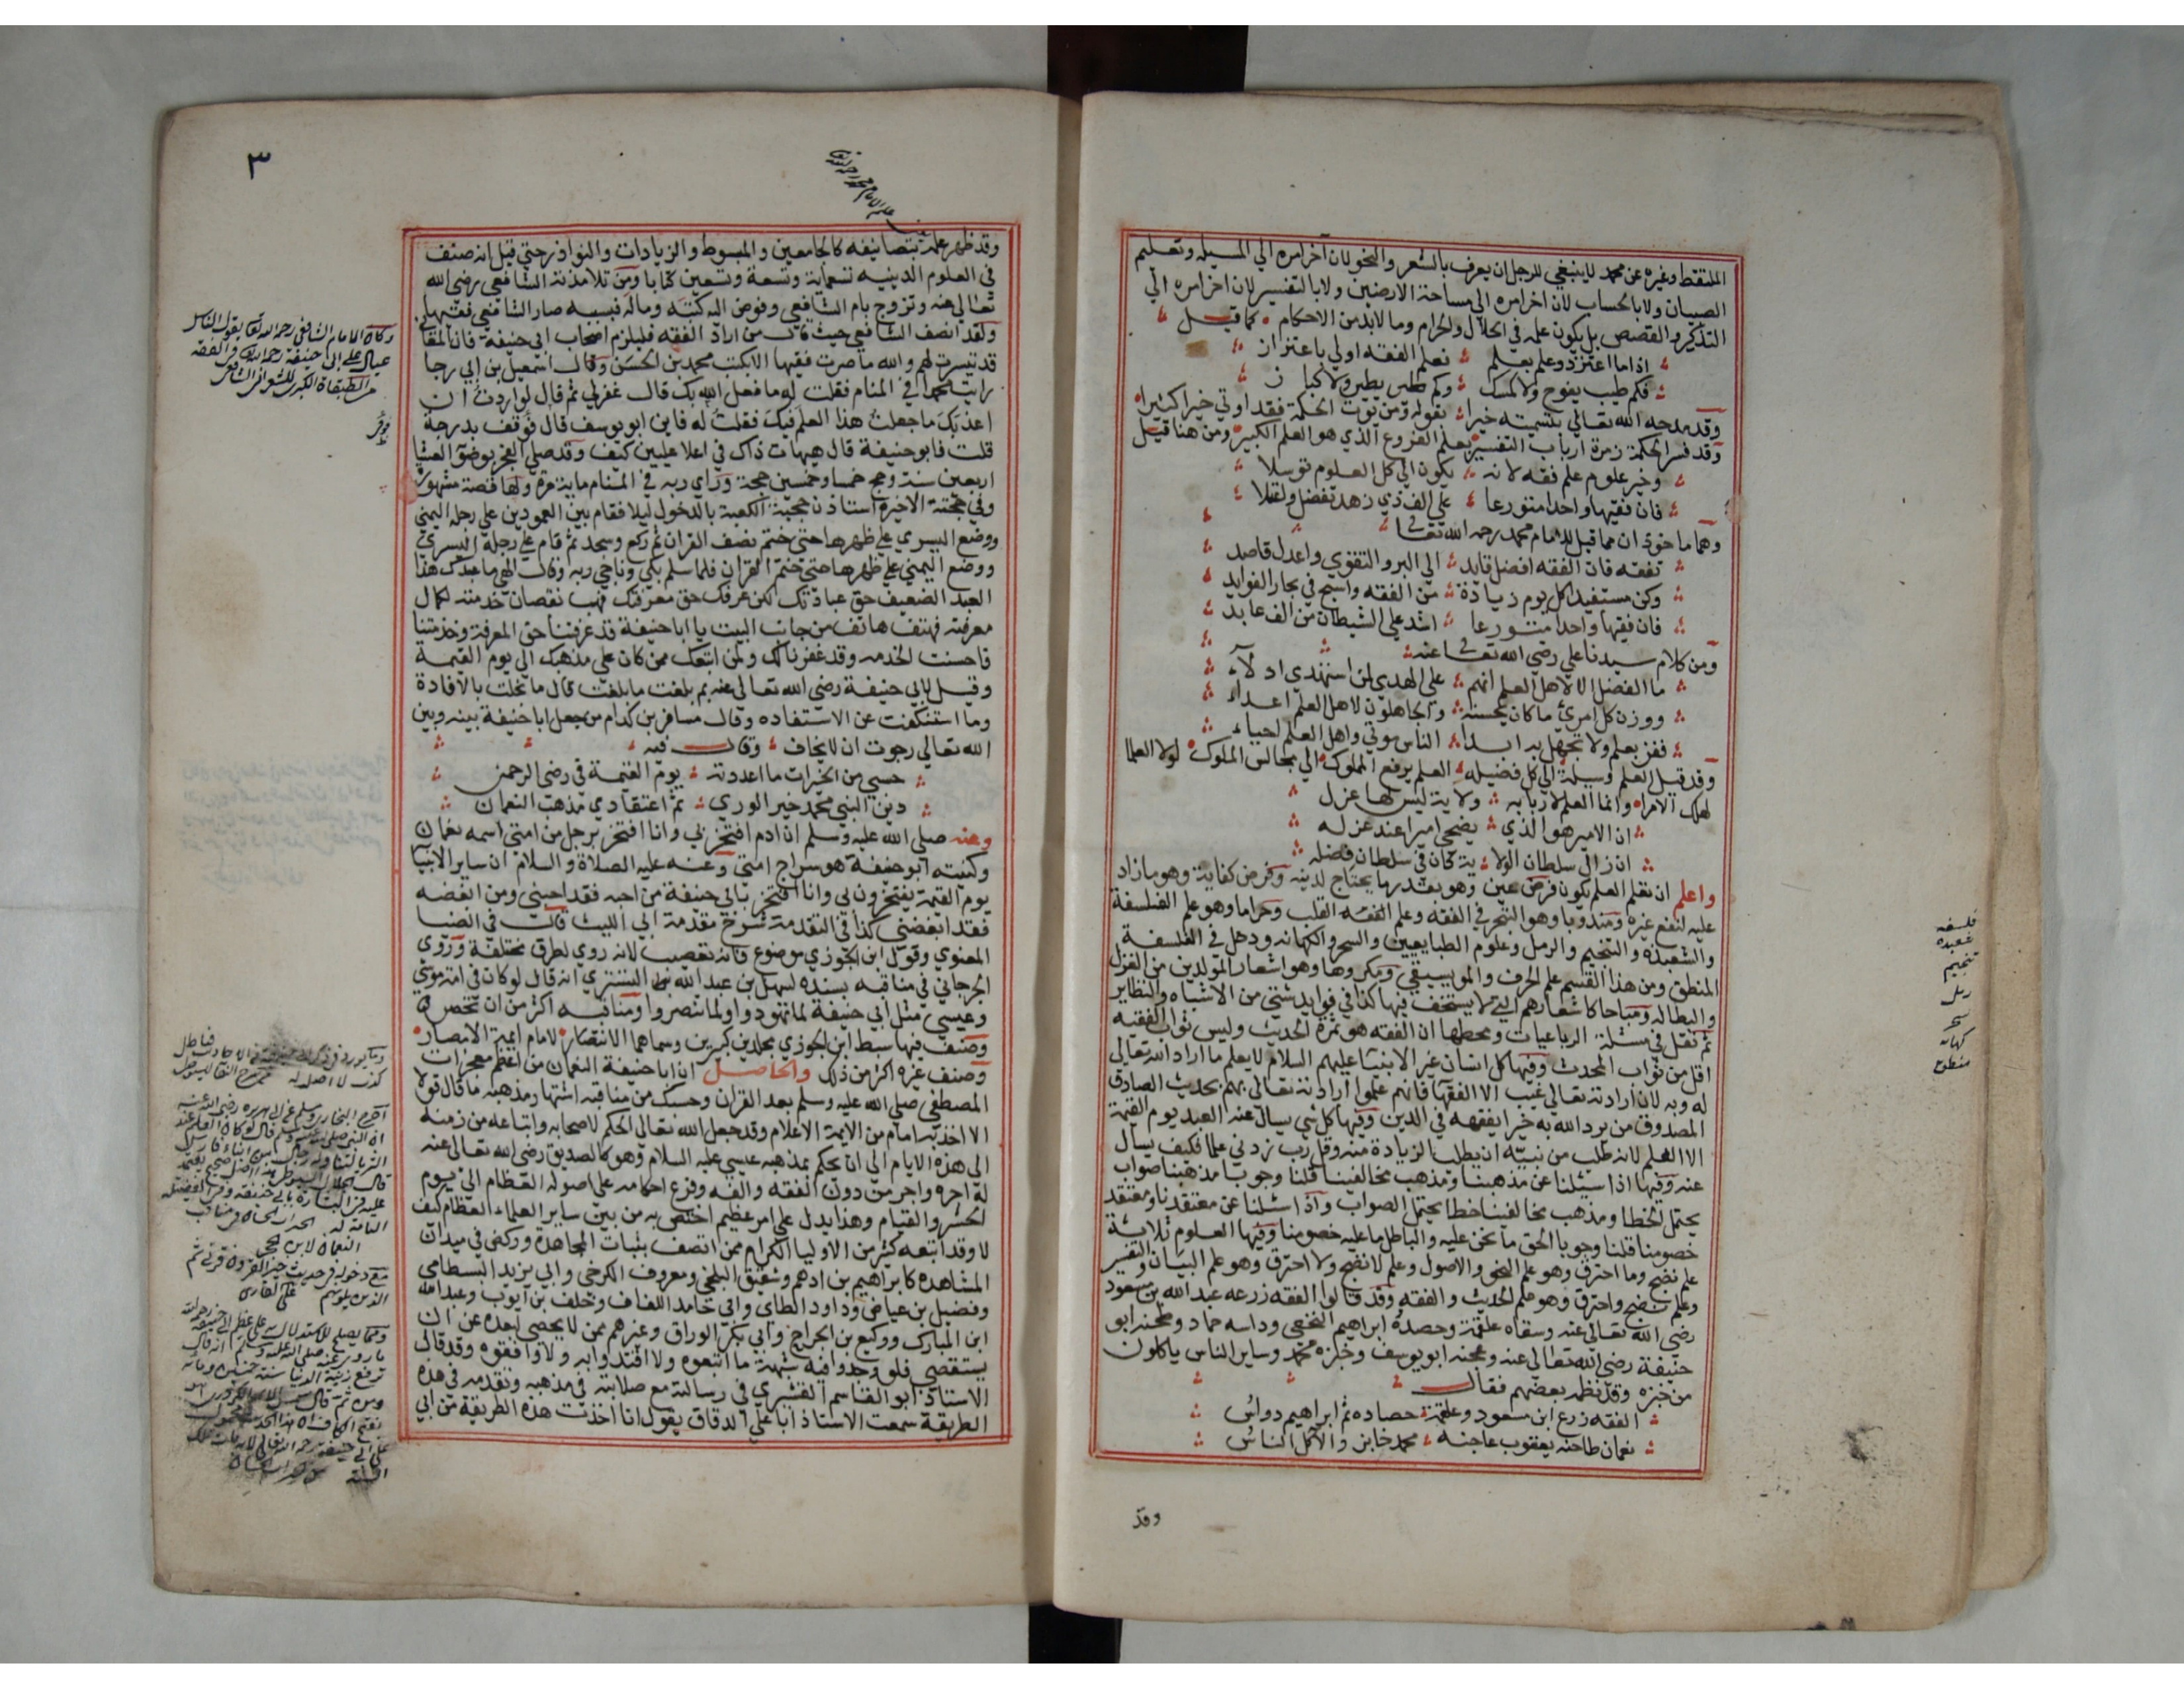 الملتقط وغيره عن محمد لا ينبغي للرجل ان يعرف بالشعر والنحو لان آخر امره الي المسيله وتعليم
الصبيان ولا بالحساب لان اخر امره الي مساحة الارضين ولا بالتفسير لان اخر امره الي
التذكير والقصص بل يكون علمه في الحلال والحرام وما لا بد من الاحكام كما قيل
اذا ما اعتز ذو علم بعلم فعلم الفقه اولي باعتزاز
فكم طيب يفوح ولا كمسك وكم طير يطير ولا كباز
وقد مدحه الله تعالي بتسميته خيرا بقوله ومن يوت الحكمة فقد اوتي خيرا كثيرا
وقد فسر الحكمة زمرة ارباب التفسير بعلم الفروع الذي هو العلم الكبير ومن هنا قيل
وخير علوم علم فقه لانه يكون الي كل العلوم توسلا
فان فقيها واحدا متورعا علي الف ذي زهد تفضل واعتلا
وهما ماخوذان مما قيل للامام محمد رحمه الله تعالى
تفقه فان الفقه افضل قايد الي البر والتقوي واعدل قاصد
وكن مستفيدا كل يوم زيادة من الفقه واسبح في بحار الفوايد
فان فقيها واحدا متورعا اشد علي الشيطان من الف عابد
ومن كلام سيدنا علي رضي الله تعالى عنه
ما الفضل الا لاهل العلم انهم علي الهدي لمن استهدي ادلآء
ووزن كل امرئ ما كان يحسنه والجاهلون لاهل العلم اعداء
ففز بعلم ولا تجهل به ابدا الناس موتي واهل العلم احياء
وقد قيل العلم وسيلة الي كل فضيله العلم يرفع المملوك الي مجالس الملوك لولا العلما
لهلك الامرا وانما العلم لاربابه ولاية ليس لها عزل
ان الامير هو الذي يضحي اميرا عند عزله
ان زال سلطان الولاية كان في سلطان فضله
واعلم ان تعلم العلم يكون فرض عين وهو بقدر ما يحتاج لدينه وفرض كفاية وهو ما زاد
عليه لنفع غيره ومندوبا وهو التبحر في الفقه وعلم الفقه القلب وحراما وهو علم الفلسفة
والشعبذة والتنجيم والرمل وعلوم الطبايعيين والسحر والكهانه ودخل في الفلسفة
المنطق ومن هذا القسم علم الحرف والموسيقي ومكروها وهو اشعار المولدين من الغزل
والبطاله ومباحا كاشعارهم التي لا يستخف فيها كذا في فوايد شتي من الاشباه والنظاير
ثم نقل في مسئلة الرباعيات ومحطها ان الفقه هو ثمرة الحديث وليس ثواب الفقيه
اقل من ثواب المحدث وفيها كل انسان غير الانبيا عليهم السلام لا يعلم ما اراد الله تعالي
له وبه لان ارادته تعالي غيب الا الفقها فانهم علموا ارادته تعالي بهم بحديث الصادق
المصدوق من يرد الله به خيرا يفقهه في الدين وفيها كل شي يسال عنه العبد يوم القيمة
الا العلم لانه طلب من نبيه ان يطلب الزيادة منه وقل رب زدني علما فكيف يسال
عنه وفيها اذا سئلنا عن مذهبنا ومذهب مخالفينا قلنا وجوبا مذهبنا صواب
يحتمل الخطا ومذهب مخالفينا خطا يحتمل الصواب واذا سئلنا عن معتقدنا ومعتقد
خصومنا قلنا وجوبا الحق ما نحن عليه والباطل ما عليه خصومنا وفيها العلوم ثلاثة
علم نضج وما احترق وهو علم النحو والاصول وعلم لا نضج ولا احترق وهو علم البيان والتفسير
وعلم نضج واحترق وهو علم الحديث والفقه وقد قالوا الفقه زرعه عبد الله بن مسعود
رضي الله تعالي عنه وسقاه علقمة وحصده ابراهيم النخعي وداسه حماد وطحنه ابو
حنيفة رضي الله تعالي عنه وعجنه ابو يوسف وخبزه محمد وساير الناس ياكلون
من خبزه وقد نظمه بعضهم فقال
الفقه زرع ابن مسعود وعلقمة حصاده ثم ابراهيم دواس
نعمان طاحنه يعقوب عاجنه محمد خابز والآكل الناس
وقد
فلسفه
شعبده
تنجيم
رمل
سحر
كهانه
منطق
٣
وقد ظهر علمه بتصانيفه كالجامعين والمبسوط والزيادات والنوادر حتي قيل انه صنف
في العلوم الدينيه تسعماية وتسعة وتسعين كتابا ومن تلامذته الشافعي رضي الله
تعالي عنه وتزوج بام الشافعي وفوض اليه كتبه وماله فبسببه صار الشافعي فقيها
ولقد انصف الشافعي حيث قال من اراد الفقه فليلزم اصحاب ابي حنيفة فان المعاني
قد تيسرت لهم والله ما صرت فقيها الا بكتب محمد بن الحسن وقال اسمعيل بن ابي رجا
رايت محمدا في المنام فقلت له ما فعل الله بك قال غفر لي ثم قال لو اردت ان
اعذبك ما جعلت هذا العلم فيك فقلت له فاين ابو يوسف قال فوقف بدرجة
قلت فابو حنيفة قال هيهات ذاك في اعلا عليين كيف وقد صلي الفجر بوضوء العشا
اربعين سنة وحج خمسا وخمسين حجة وراي ربه في المنام ماية مرة ولها قصة مشهورة
وفي حجته الاخيرة استاذن حجبة الكعبة بالدخول ليلا فقام بين العمودين علي رجله اليمني
ووضع اليسري علي ظهرها حتي ختم نصف القران ثم ركع وسجد ثم قام علي رجله اليسري
ووضع اليمني علي ظهرها حتي ختم القران فلما سلم بكي وناجي ربه وقال الهي ما عبدك هذا
العبد الضعيف حق عبادتك لكن عرفك حق معرفتك فهب نقصان خدمته لكمال
معرفته فهتف هاتف من جانب البيت يا ابا حنيفة قد عرفتنا حق المعرفة وخدمتنا
فاحسنت الخدمه وقد غفرنا لك ولمن اتبعك ممن كان علي مذهبك الي يوم القيمة
وقيل لابي حنيفة رضي الله تعالي عنه بم بلغت ما بلغت قال ما بخلت بالافادة
وما استنكفت عن الاستفاده وقال مسافر بن كدام من جعل ابا حنيفة بينه وبين
الله تعالي رجوت ان لا يخاف وقال فيه
حسبي من الخيرات ما اعددته يوم القيمة في رضي الرحمن
دين النبي محمد خير الوري ثم اعتقادي مذهب النعمان
وعنه صلي الله عليه وسلم ان ادم افتخر بي وانا افتخر برجل من امتي اسمه نعمان
وكنيته ابو حنيفة هو سراج امتي وعنه عليه الصلاة والسلام ان ساير الانبيا
يوم القيمة يفتخرون بي وانا افتخر بابي حنيفة من احبه فقد احبني ومن ابغضه
فقد ابغضني كذا في التقدمة شرح مقدمة ابي الليث قال في الضيا
المعنوي وقول ابن الجوزي موضوع فانه تعصب لانه روي بطرق مختلفة وروي
الجرجاني في مناقبه بسنده لسهل بن عبد الله التستري انه قال لو كان في امة موسي
وعيسي مثل ابي حنيفة لما تهودوا ولما تنصروا ومناقبه اكثر من ان تحصر
وصنف فيها سبط ابن الجوزي مجلدين كبيرين وسماهما الانتصار لامام ايمة الامصار
وصنف غيره اكثر من ذلك والحاصل ان ابا حنيفة النعمان من اعظم معجزات
المصطفي صلي الله عليه وسلم بعد القران وحسبك من مناقبه اشتهار مذهبه ما قال قولا
الا اخذ به امام من الايمة الاعلام وقد جعل الله تعالي الحكم لاصحابه واتباعه من زمنه
الي هذه الايام الي ان يحكم بمذهبه عيسي عليه السلام وهو كالصديق رضي الله تعالي عنه
له اجره واجر من دون الفقه والفه وفرع احكامه علي اصوله العظام الي يوم
الحشر والقيام وهذا يدل علي امر عظيم اختص به من بين ساير العلماء العظام كيف
لا وقد اتبعه كثير من الاوليا الكرام ممن اتصف بثبات المجاهدة وركض في ميدان
المشاهده كابراهيم بن ادهم وشقيق البلخي ومعروف الكرخي وابي يزيد البسطامي
وفضيل بن عياض وداود الطاي وابي حامد اللفاف وخلف بن ايوب وعبد الله
ابن المبارك ووكيع بن الجراح وابي بكر الوراق وغيرهم ممن لا يحصي لبعده عن ان
يستقصي فلو وجدوا فيه شبهة ما اتبعوه ولا اقتدوا به ولا وافقوه وقد قال
الاستاذ ابو القاسم القشيري في رسالته مع صلابته في مذهبه وتقدمه في هذه
الطريقة سمعت الاستاذ ابا علي الدقاق يقول انا اخذت هذه الطريقة من ابي
وكان الامام الشافعي رحمه الله تعا يقول الناس
عيال علي ابي حنيفة رحمه الله في الفقه